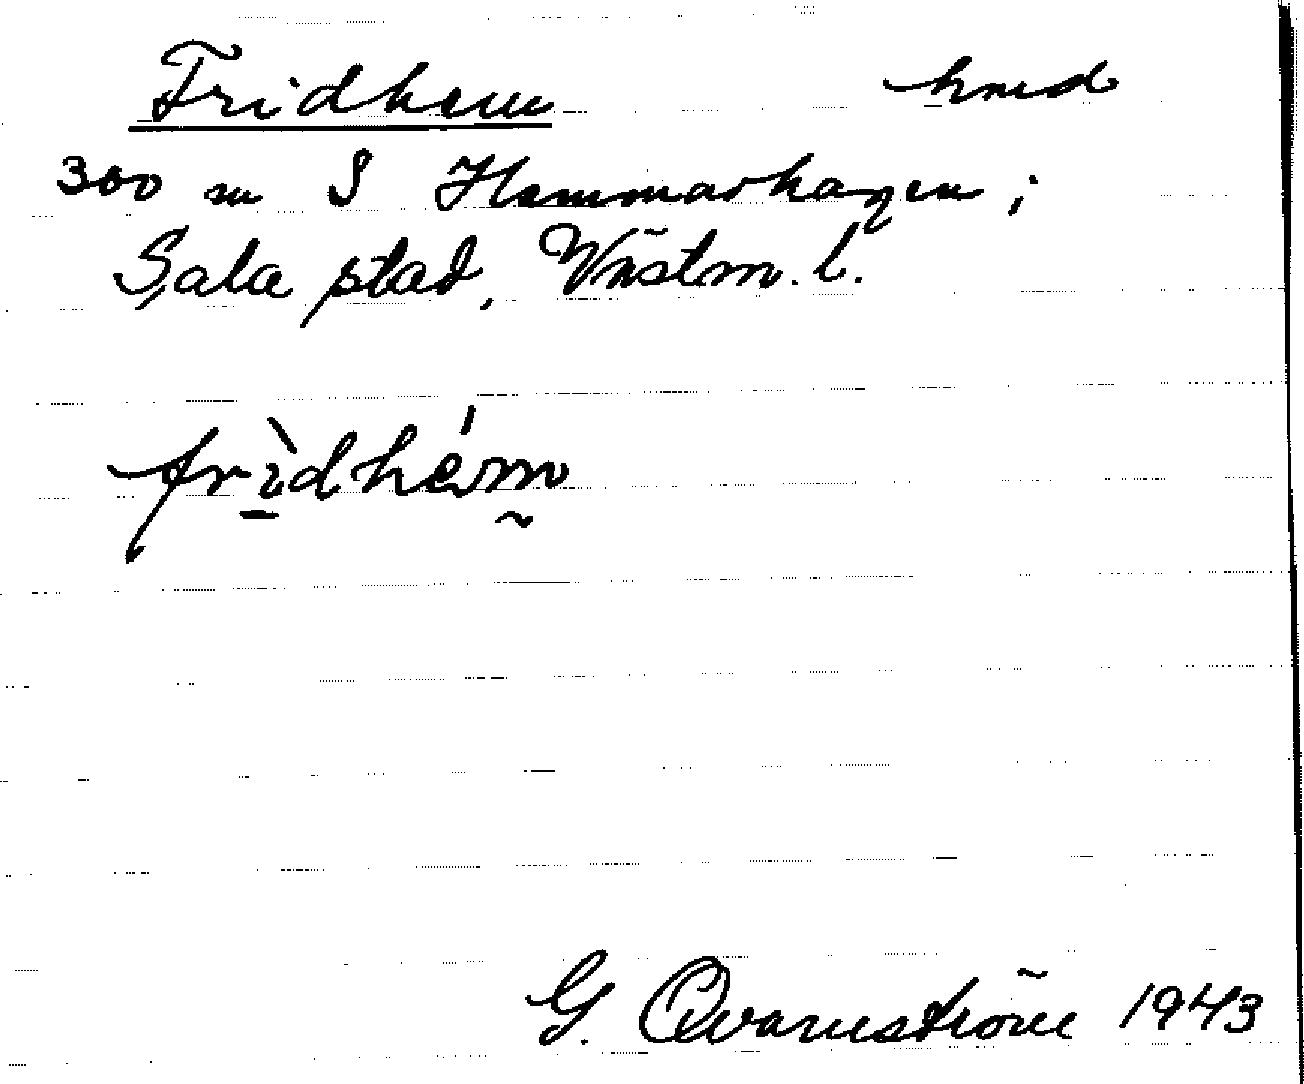 Fridhem hmd
300 m S Hammarhagen i
Sala stad, Västm. l.
frìdhém
G. Qvarnström 1943